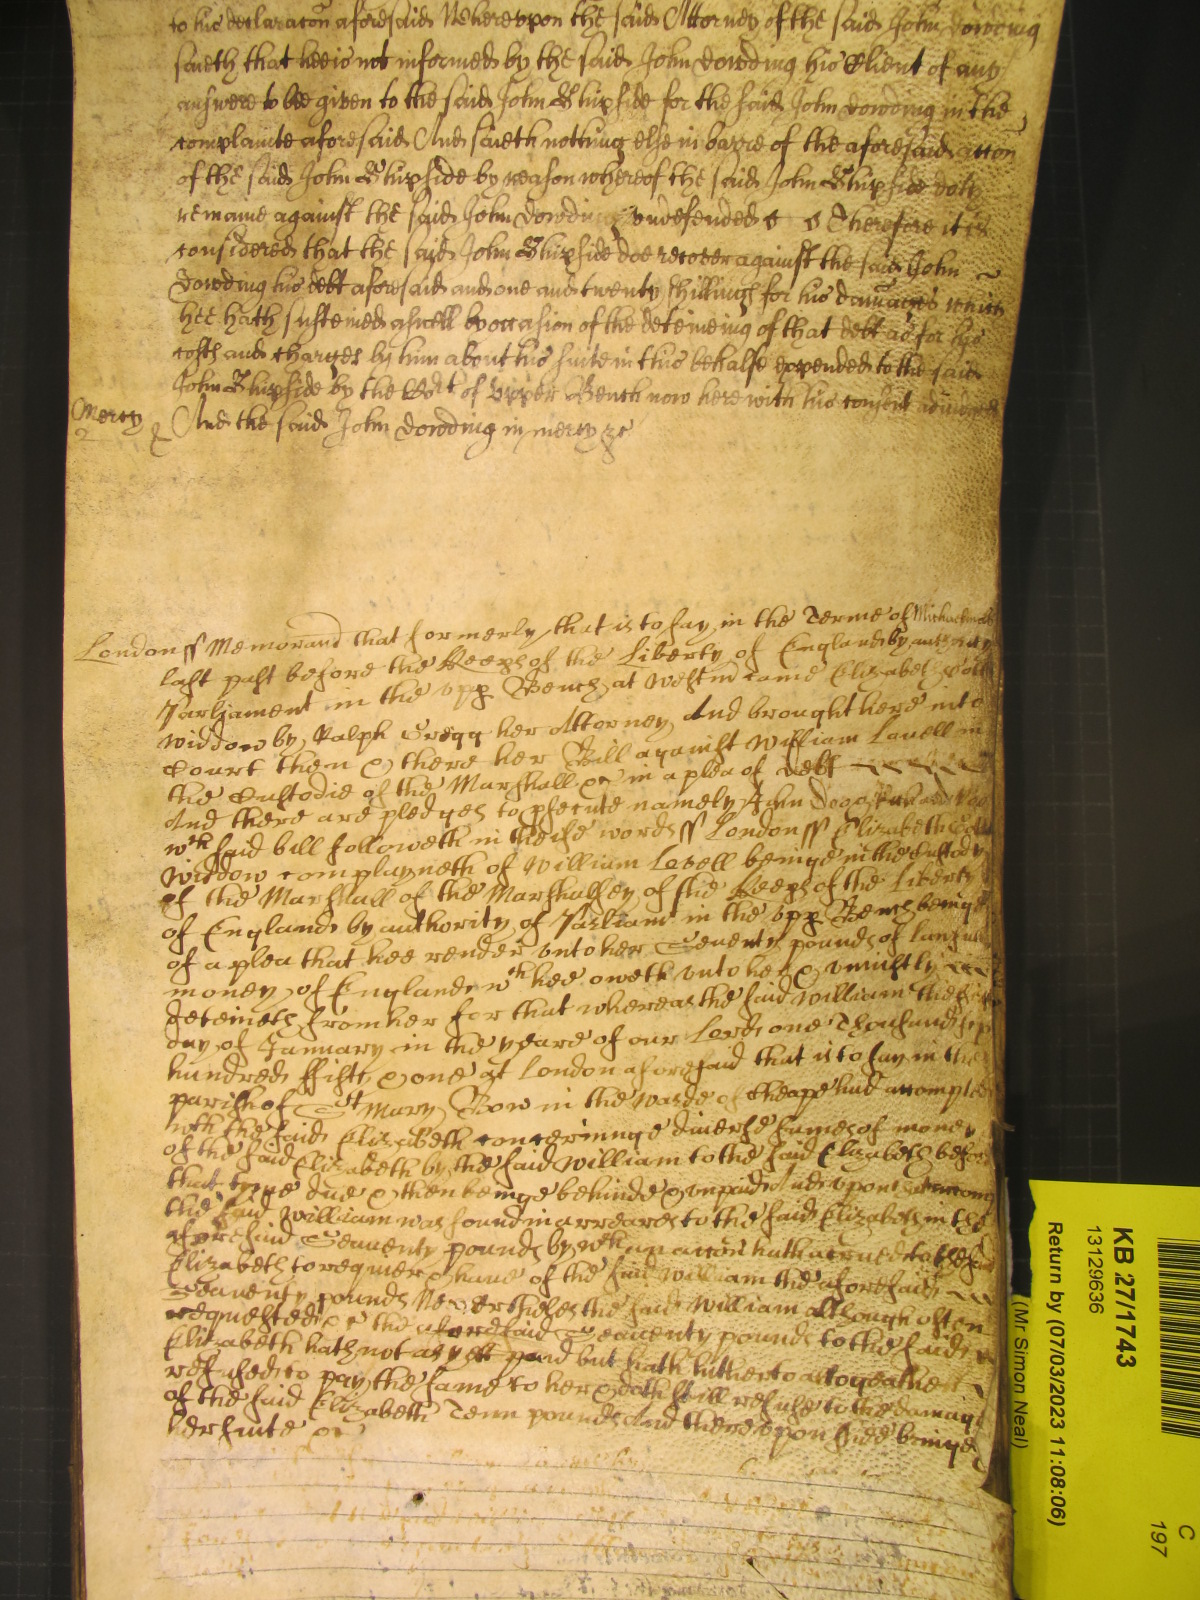 to his declaracon aforesaid Whereupon the said Attorney of the said John Dowding
saieth that hee is not informed by the said John Dowding his Client of any
answere to bee given to the said John Shipside for the said John Dowding in the
complainte aforesaid And saieth nothing else in barre of the aforesaid accon
of the said John Shipside by reason whereof the said John Shipside doth
remaine against the said John Dowding undefended Therefore it is
considered that the said John Shipside doe recover against the said John
Dowding his debt aforesaid and one and twenty shillings for his damages which
hee hath susteined aswell by occasion of the deteineing of that debt as for his
costs and charges by him about his suite in this behalfe expended to the said
John Shipside by the Cort of Upper Bench now here with his consent adiudged
Mercy And the said John Dowding in mercy &c
London ss Memorand that formerly that is to say in the Terme of Michaelmas
last past before the Keeps of the Liberty of England by authority
Parliament in the upp Bench at Westm came Elizabeth
widdow by Ralph Gregg her Attorney And brought here into
Court then & there her Bill against William Lavell in
the Custodie of the Marshall &c in a plea of Debt
And there are pledges to psecute namely John Doo &
wch said bill followeth in theise words ss London ss Elizabeth
widdow complayneth of William Lovell beinge in the Custody
of the Marshall of the Marshalsey of the Keeps of the Liberty
of England by authority of Parliam in the upp Bench beinge
of a plea that hee render unto her Seventy pounds of lawfull
money of England wch hee oweth unto her & uniustly
deteineth from her for that whereas the said William the
day of January in the yeare of our Lord one Thousand six
hundred ffifty & one at London aforesaid that is to say in the
parish of St Mary Bow in the warde of Cheape had accompted
with the said Elizabeth concerninge diverse sumes of money
of the said Elizabeth by the said William to the said Elizabeth before
that tyme due & then beinge behinde & unpaid And upon
the said William was found in arreares to the said Elizabeth in the
aforesaid Seaventy pounds by wch an accon hath accrued to the said
Elizabeth to require & have of the said William the aforesaid
Seaventy pounds Neverthelesse the said William although often
requested &c the aforesaid Seaventy pounds to the said
Elizabeth hath not as yett paid but hath hitherto altogeather
refused to pay the same to her & doth still refuse to the damage
of the said Elizabeth Tenn pounds And thereupon shee bringe
her suite &c
KB 27/1743
13129636
Return by (07/03/2023 11:08:06)
(Mr Simon Neal)
C
197